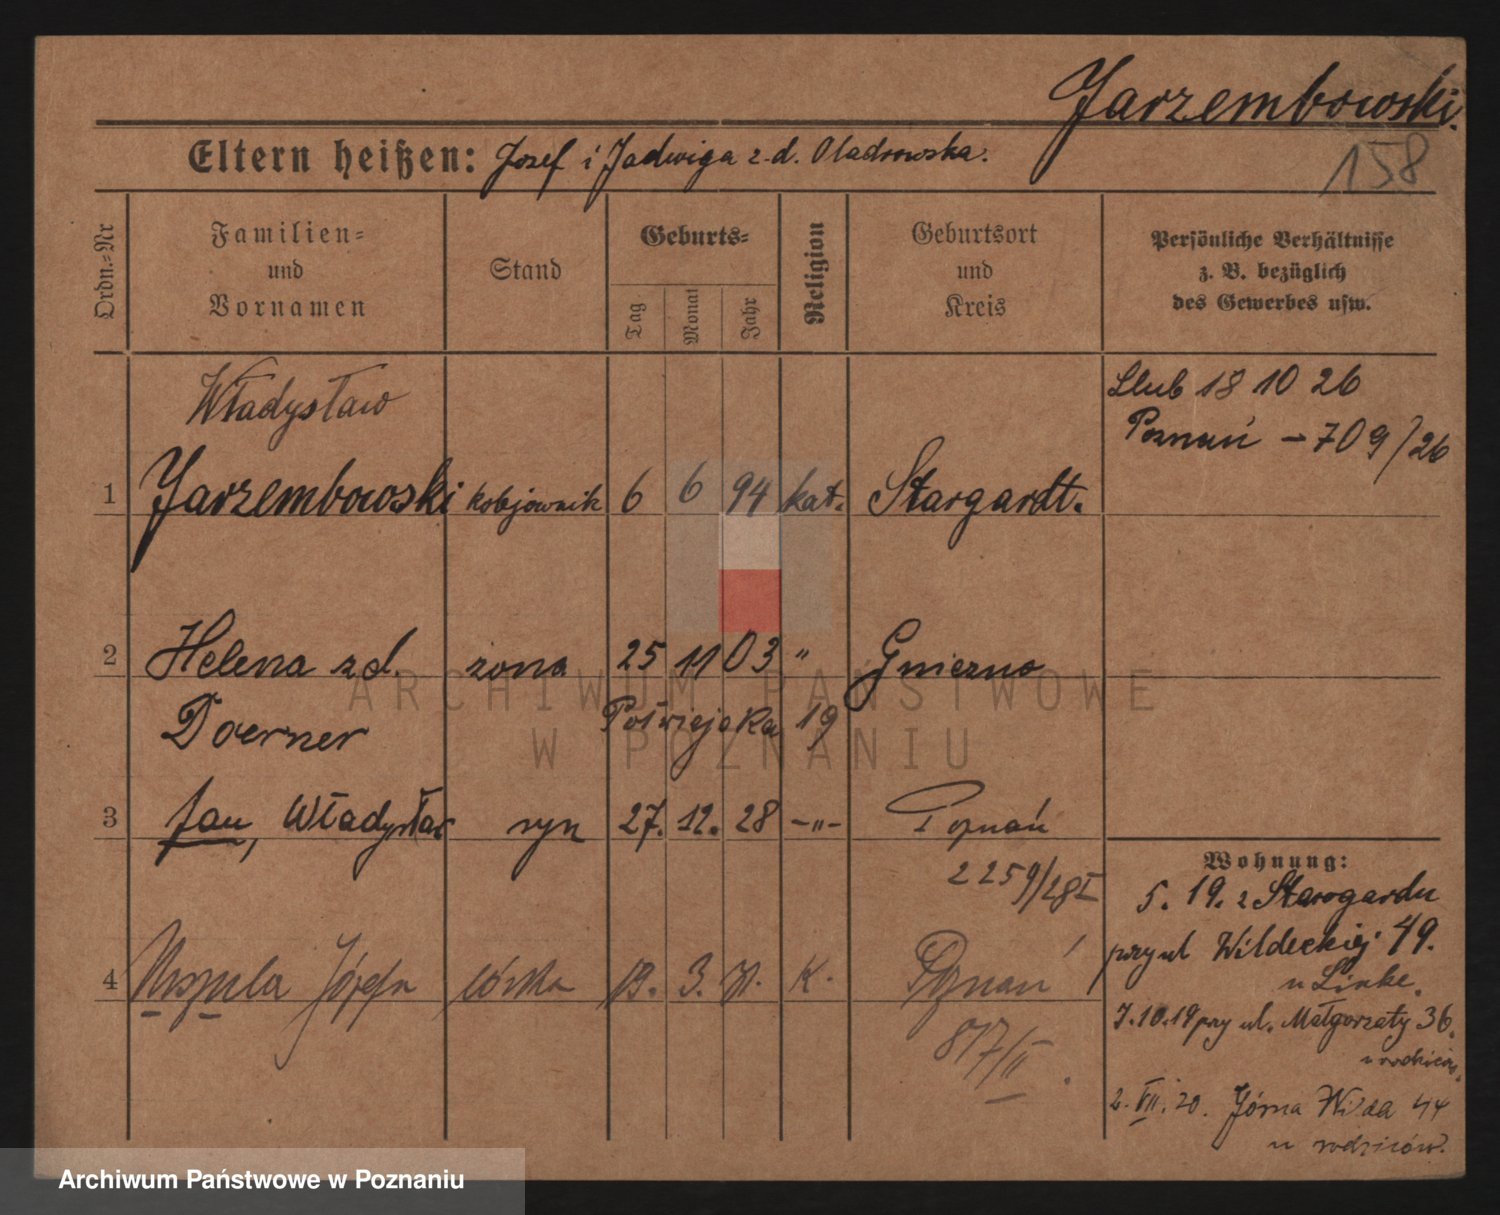 Jarzembowski.
Eltern heißen: Josef i Jadwiga z.d. Oladrowska.
158
Ordn.-Nr
Familien-
und
Vornamen
Stand
Geburts-
Tag
Monat
Jahr
Religion
Geburtsort
und
Kreis
Persönliche Verhältnisse
z. B. bezüglich
des Gewerbes usw.
Władysław
Ślub 18 10 26
Poznań – 709/26
1 Jarzembowski kolejownik 6 6 94 kat. Stargardt.
2 Helena z d. żona 25 11 03 " Gniezno
Doerner 19
3 Jan, Władysław syn 27. 12. 28 -"- Poznań
2259/28 I
4 Urszula Józefa córka 3. 31. K. Poznań
817/II.
Wohnung:
5. 19. z Starogardu
przy ul Wildeckiej 49.
u Linke.
7.10.19 przy ul. Małgorzaty 36.
u rodziców.
2. VII. 20. Górna Wilda 44
u rodziców.
ARCHIWUM PAŃSTWOWE
W POZNANIU
Archiwum Państwowe w Poznaniu